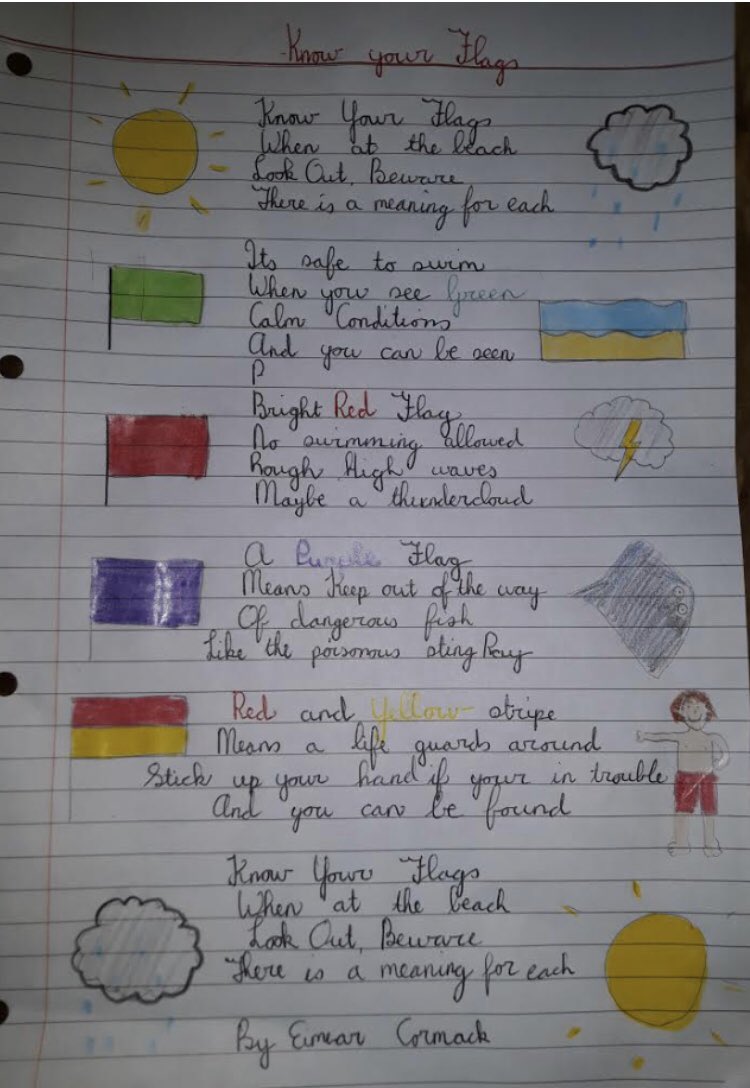 Know your Flags
Know Your Flags
When at the beach
Look Out, Beware
There is a meaning for each
Its safe to swim
When you see Green
Calm Conditions
And you can be seen
P
Bright Red Flag
No swimming allowed
Rough High waves
Maybe a thundercloud
A Purple Flag
Means Keep out of the way
Of dangerous fish
Like the poisonous sting Ray
Red and Yellow stripe
Means a life guards around
Stick up your hand if your in trouble
And you can be found
Know Your Flags
When at the beach
Look Out, Beware
There is a meaning for each
By Eimear Cormack